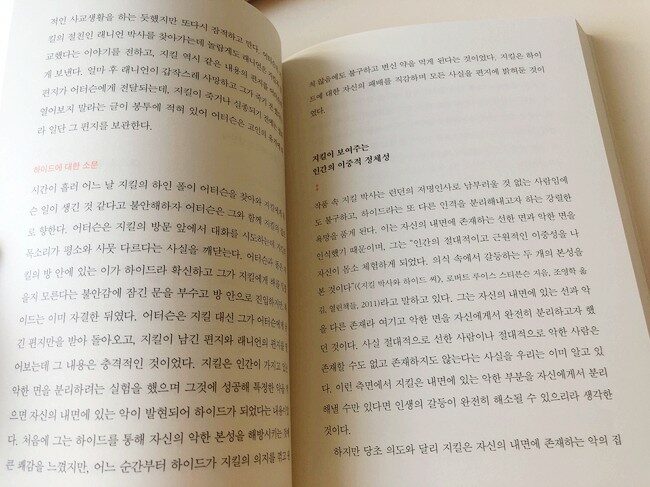 적인 사교생활을 하는 듯했지만 또다시 잠적하고 만다. 어터슨
킬의 절친인 래니언 박사를 찾아가는데 놀랍게도 래니언
교했다는 이야기를 전하고, 지킬 역시 같은 내용의 편지를
게 보낸다. 얼마 후 래니언이 갑작스레 사망하고 그가 죽기
편지가 어터슨에게 전달되는데, 지킬이 죽거나 실종되기 전에는
열어보지 말라는 글이 봉투에 적혀 있어 어터슨은 고인의
라 일단 그 편지를 보관한다.
하이드에 대한 소문
시간이 흘러 어느 날 지킬의 하인 풀이 어터슨을 찾아와 지킬에게
슨 일이 생긴 것 같다고 불안해하자 어터슨은 그와 함께 지킬의
로 향한다. 어터슨은 지킬의 방문 앞에서 대화를 시도하는데
목소리가 평소와 사뭇 다르다는 사실을 깨닫는다. 어터슨과 풀은
킬의 방 안에 있는 이가 하이드라 확신하고 그가 지킬에게 해를
을지 모른다는 불안감에 잠긴 문을 부수고 방 안으로 진입하지만
이드는 이미 자결한 뒤였다. 어터슨은 지킬 대신 그가 어터슨에게
긴 편지만을 받아 돌아오고, 지킬이 남긴 편지와 래니언의 편지를
어보는데 그 내용은 충격적인 것이었다. 지킬은 인간이 가지고
악한 면을 분리하려는 실험을 했으며 그것에 성공해 특정한 약을
으면 자신의 내면에 있는 악이 발현되어 하이드가 되었다는 내용이
다. 처음에 그는 하이드를 통해 자신의 악한 본성을 해방시키는 것에
큰 쾌감을 느꼈지만, 어느 순간부터 하이드가 지킬의 의지를 꺾고
치 않음에도 불구하고 변신 약을 먹게 된다는 것이었다. 지킬은 하이
드에 대한 자신의 패배를 직감하며 모든 사실을 편지에 밝혀둔 것이
었다.
지킬이 보여주는
인간의 이중적 정체성
작품 속 지킬 박사는 런던의 저명인사로 남부러울 것 없는 사람임에
도 불구하고, 하이드라는 또 다른 인격을 분리해내고자 하는 강렬한
욕망을 품게 된다. 이는 자신의 내면에 존재하는 선한 면과 악한 면을
인식했기 때문이며, 그는 “인간의 절대적이고 근원적인 이중성을 나
자신이 몸소 체험하게 되었다. 의식 속에서 갈등하는 두 개의 본성을
본 것이다”(《지킬 박사와 하이드 씨》, 로버트 루이스 스티븐슨 지음, 조영학 옮
김, 열린책들, 2011)라고 말하고 있다. 그는 자신의 내면에 있는 선과 악
을 다른 존재라 여기고 악한 면을 자신에게서 완전히 분리하고자 했
던 것이다. 사실 절대적으로 선한 사람이나 절대적으로 악한 사람은
존재할 수도 없고 존재하지도 않는다는 사실을 우리는 이미 알고 있
다. 이런 측면에서 지킬은 내면에 있는 악한 부분을 자신에게서 분리
해낼 수만 있다면 인생의 갈등이 완전히 해소될 수 있으리라 생각한
것이다.
하지만 당초 의도와 달리 지킬은 자신의 내면에 존재하는 악의 집